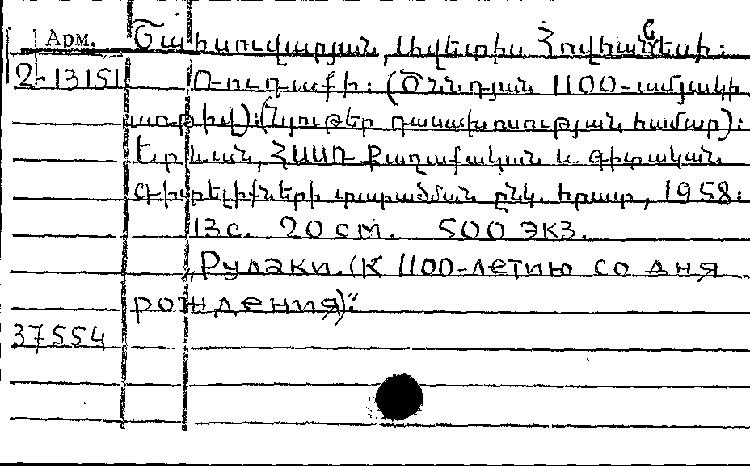 Арм. Շահսուվարյան, Ավետիս Հովհաննեսի:
2-13151 Ռուդաքի: (Ծննդյան 1100-ամյակի
առթիվ): (Նյութեր դասախոսության համար):
Երևան, ՀՍՍՌ Քաղաքական և գիտական
գիտելիքների տարածման ընկ. հրատ, 1958:
13 с. 20 см. 500 экз.
Рудаки. (К 1100-летию со дня
рождения):
37554